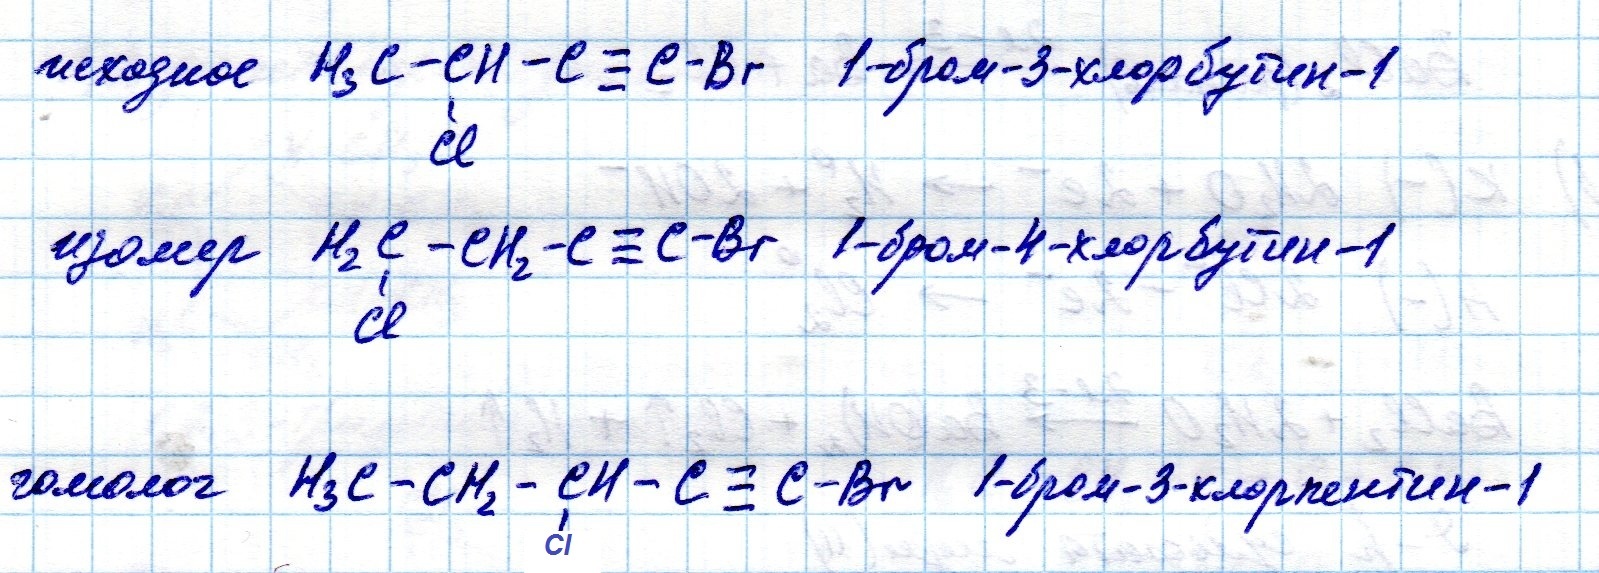 исходное H₃C-CH-C≡C-Br 1-бром-3-хлорбутин-1
Cl
изомер H₂C-CH₂-C≡C-Br 1-бром-4-хлорбутин-1
Cl
гомолог H₃C-CH₂-CH-C≡C-Br 1-бром-3-хлорпентин-1
Cl